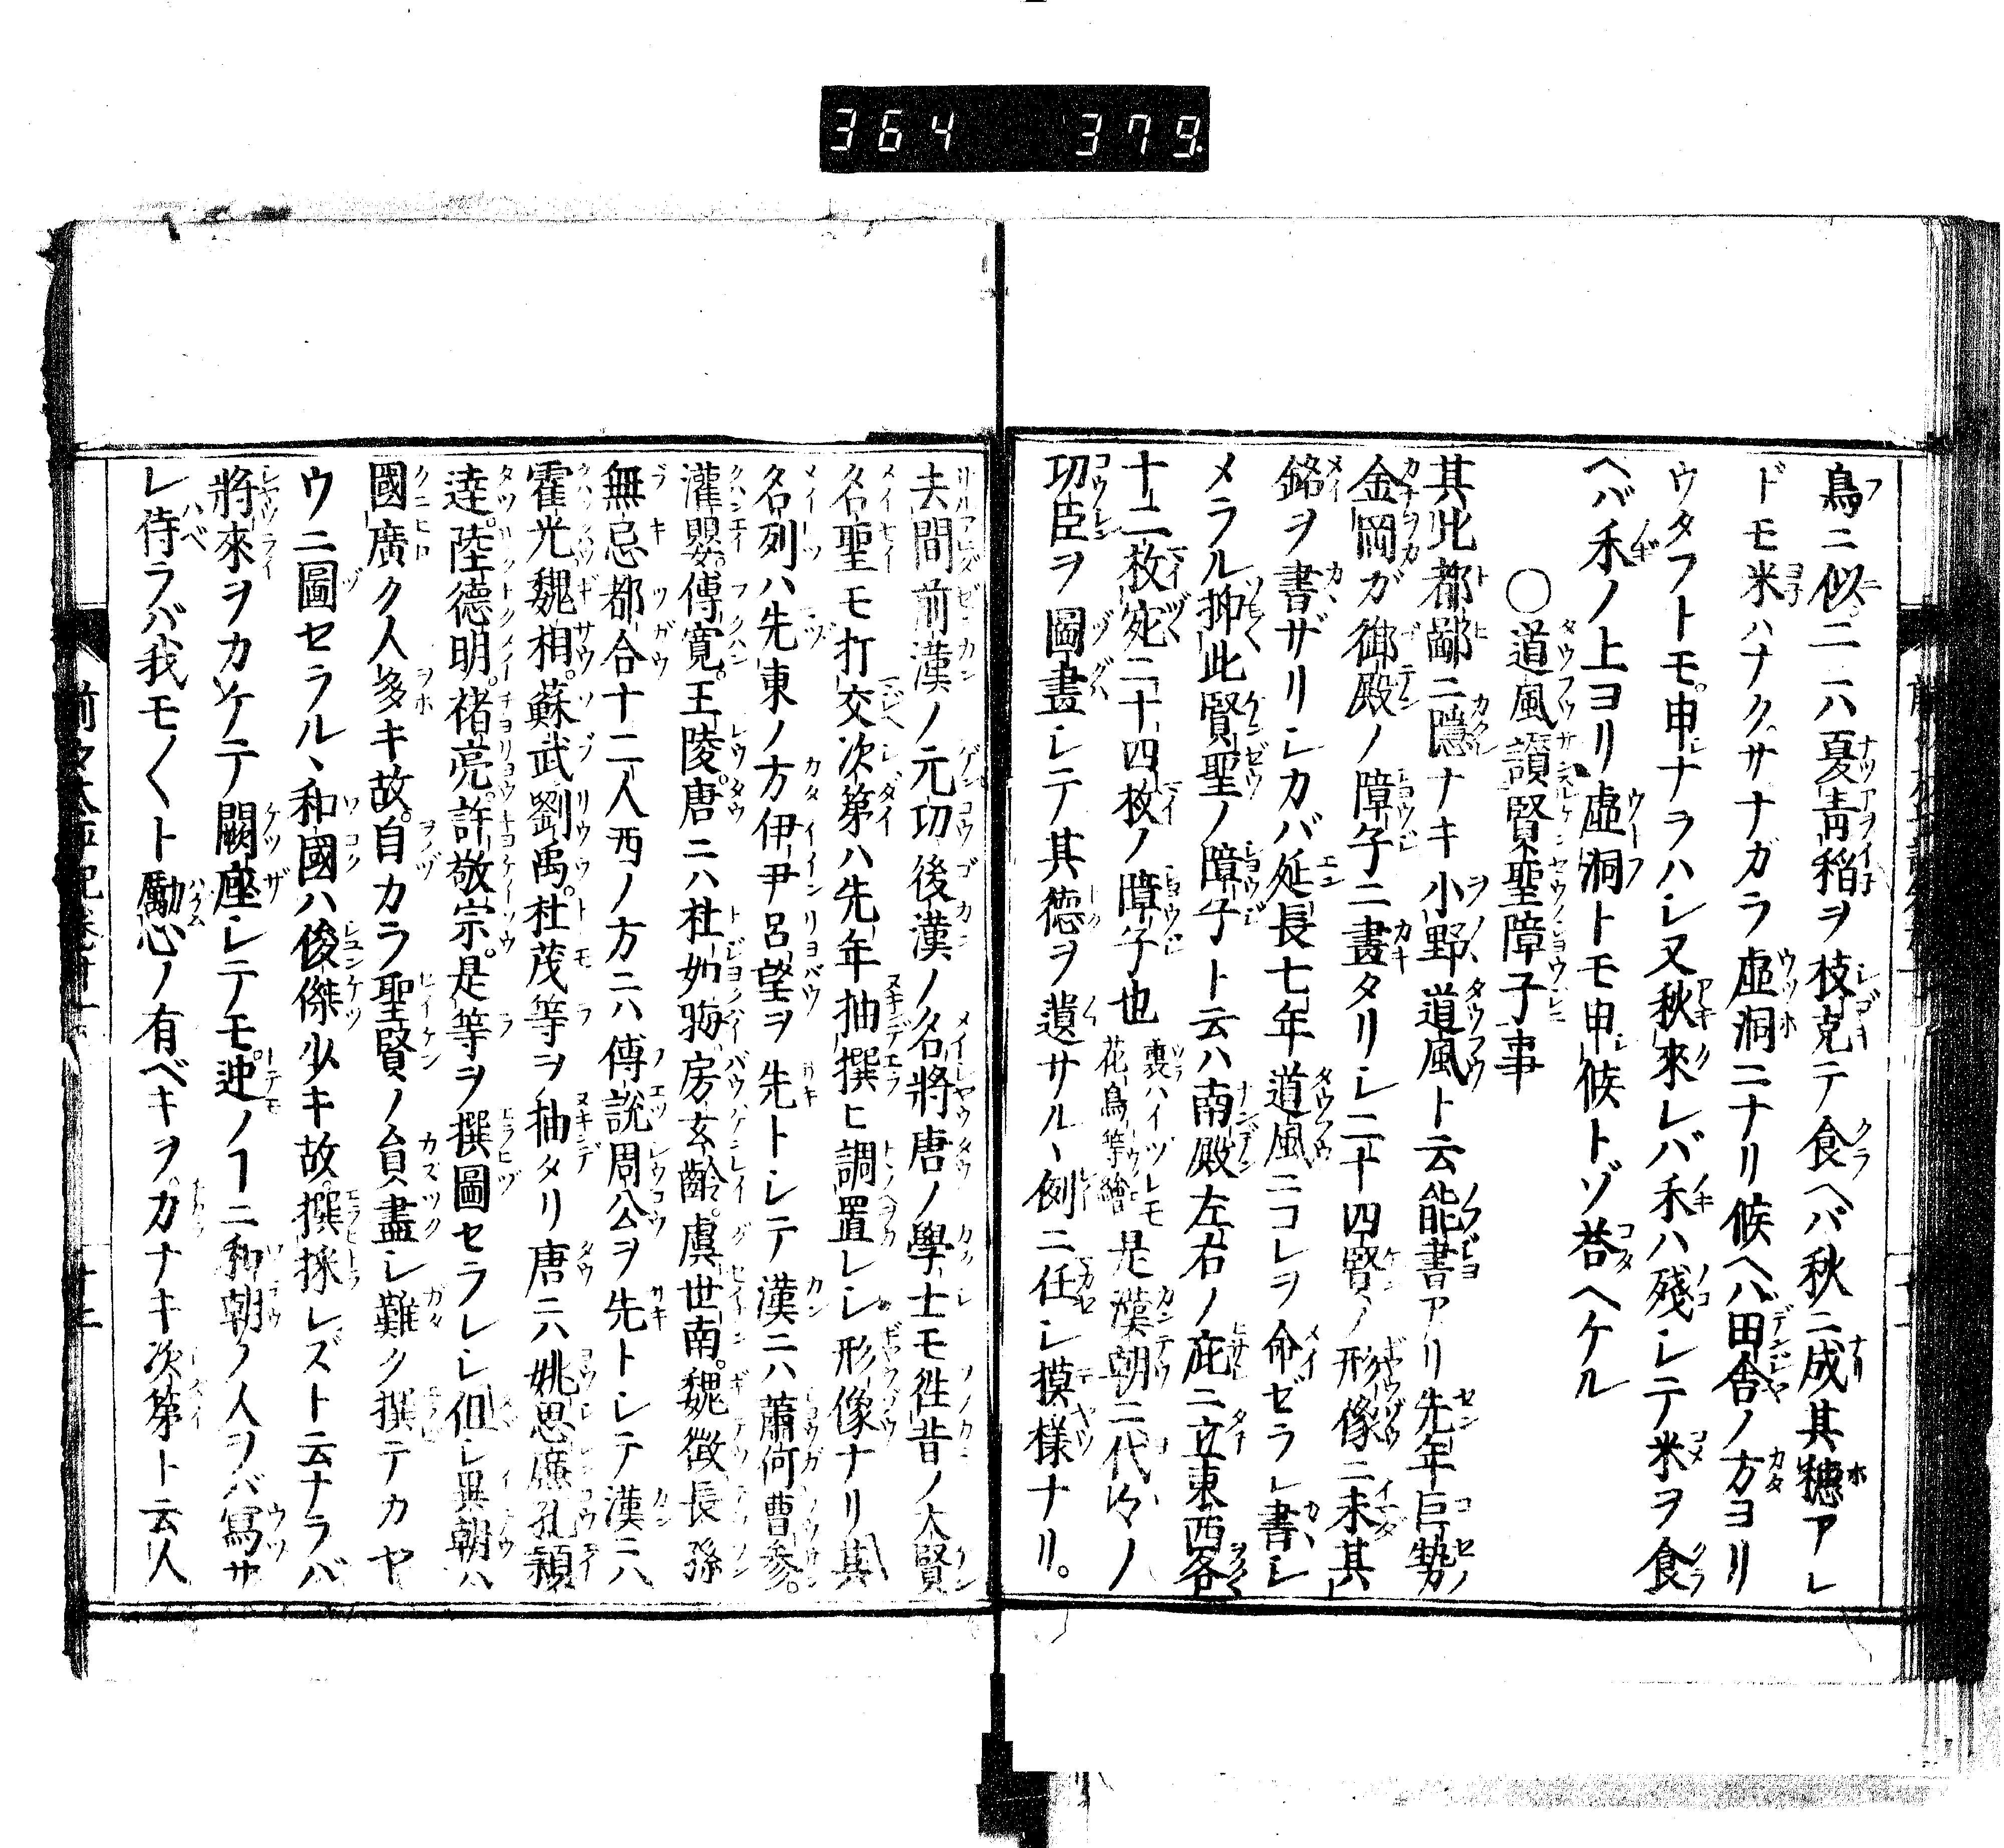 364 379
鳥ニ似。ニハ夏靑稲ヲ枝克テ食ヘバ秋ニ成其穗アレ
ドモ米ハナクサナガラ虛洞ニナリ候ヘバ田舎ノ方ヨリ
ウタフトモ。申ナラハシ又秋來レバ禾ハ殘シテ米ヲ食
ヘバ禾ノ上ヨリ虛洞トモ申候トゾ荅ヘケル
〇道風讃賢聖障子事
其比都鄙ニ隱ナキ小野道風ト云能書アリ先年巨勢
金岡ガ御殿ノ障子ニ畫タリシ二十四賢ノ形像ニ未其
銘ヲ書ザリシカバ延長七年道風ニコレヲ命ゼラレ書シ
メラル抑此賢聖ノ障子ト云ハ南殿左右ノ庇ニ立東西各
十二枚宛二十四枚ノ障子也 裏ハイヅレモ花鳥等繪 是漢朝ニ代々ノ
功臣ヲ圖畫シテ其德ヲ遺サルヽ例ニ任シ摸樣ナリ。
去間前漢ノ元功後漢ノ名將唐ノ學士モ徃昔ノ大賢
名聖モ打交次第ハ先年抽撰ヒ調置シシ形像ナリ其
名列ハ先東ノ方伊尹呂望ヲ先トシテ漢ニハ蕭何曹參。
灌嬰。傅寛。王陵。唐ニハ杜如晦房玄齡。虞世南。魏徵長孫
無忌都合十二人西ノ方ニハ傅說周公ヲ先トシテ漢ニハ
霍光魏相。蘇武劉禹。杜茂等ヲ抽タリ唐ニハ姚思廉孔穎
達。陸德明。褚亮。許敬宗。是等ヲ撰圖セラレシ但シ異朝ハ
國廣ク人多キ故。自カラ聖賢ノ員盡シ難ク撰テカヤ
ウニ圖セラルヽ和國ハ俊傑少キ故。撰採レズト云ナラバ
將來ヲカケテ闕座シテモ。迚ノヿニ和朝ノ人ヲバ寫サ
レ侍ラバ我モ〱ト勵心ノ有ベキヲ。カナキ次第ト云人
前々太平記卷廿一 十二